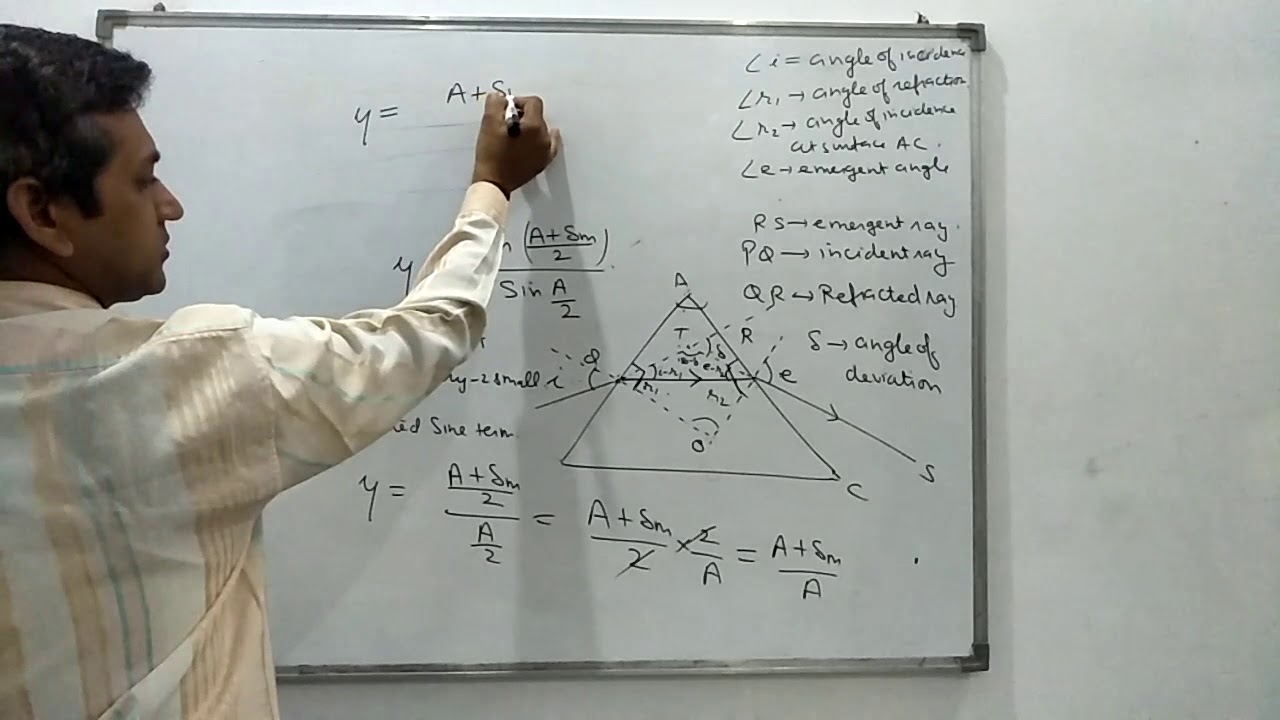 y = A+δ
y sin (A+δm/2)
Sin A/2
small
Sine term
y = (A+δm/2)/(A/2) = A+δm/2 × 2/A = A+δm/A
∠i = angle of incidence
∠r1 → angle of refraction
∠r2 → angle of incidence
at surface AC.
∠e → emergent angle
RS → emergent ray.
PQ → incident ray
QR → Refracted ray
δ → angle of
deviation
A
T
R
Q
δ
i
i-r1
e-r2
e
r1
r2
O
S
C